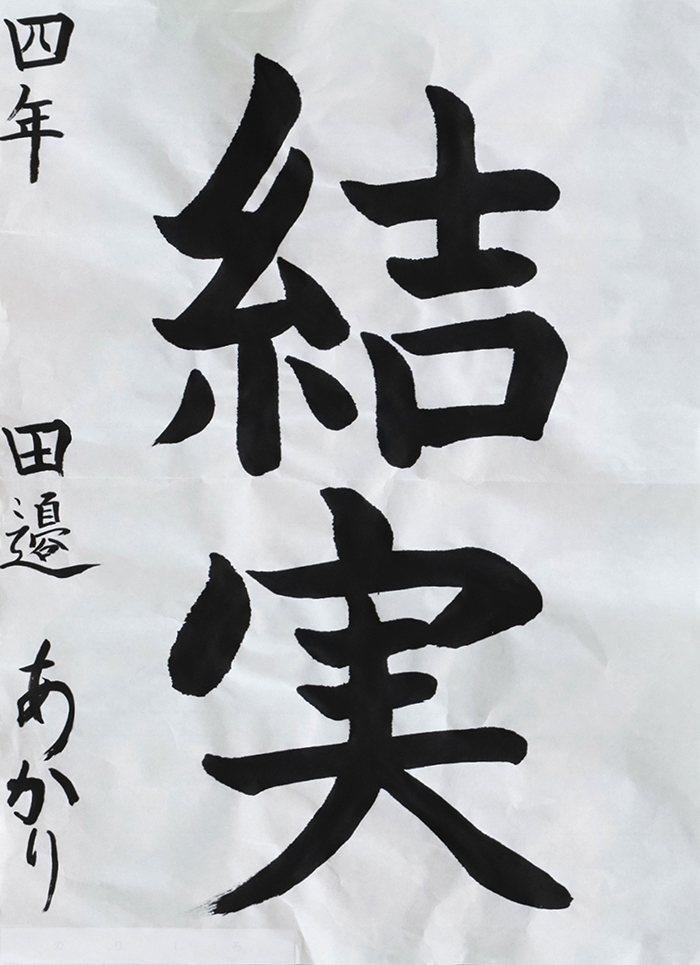 結実
四年 田邉 あかり